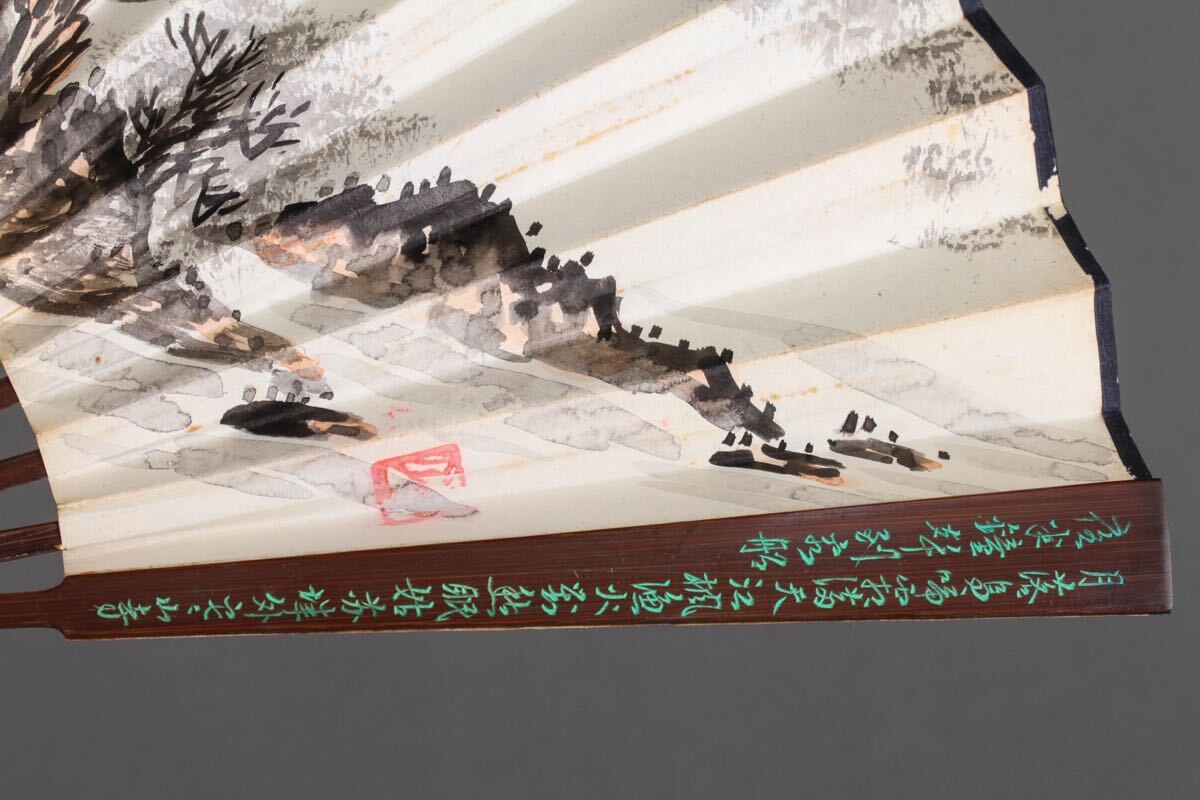 月落烏啼霜滿天江楓漁火對愁眠姑蘇城外寒山寺
夜半鐘聲到客船